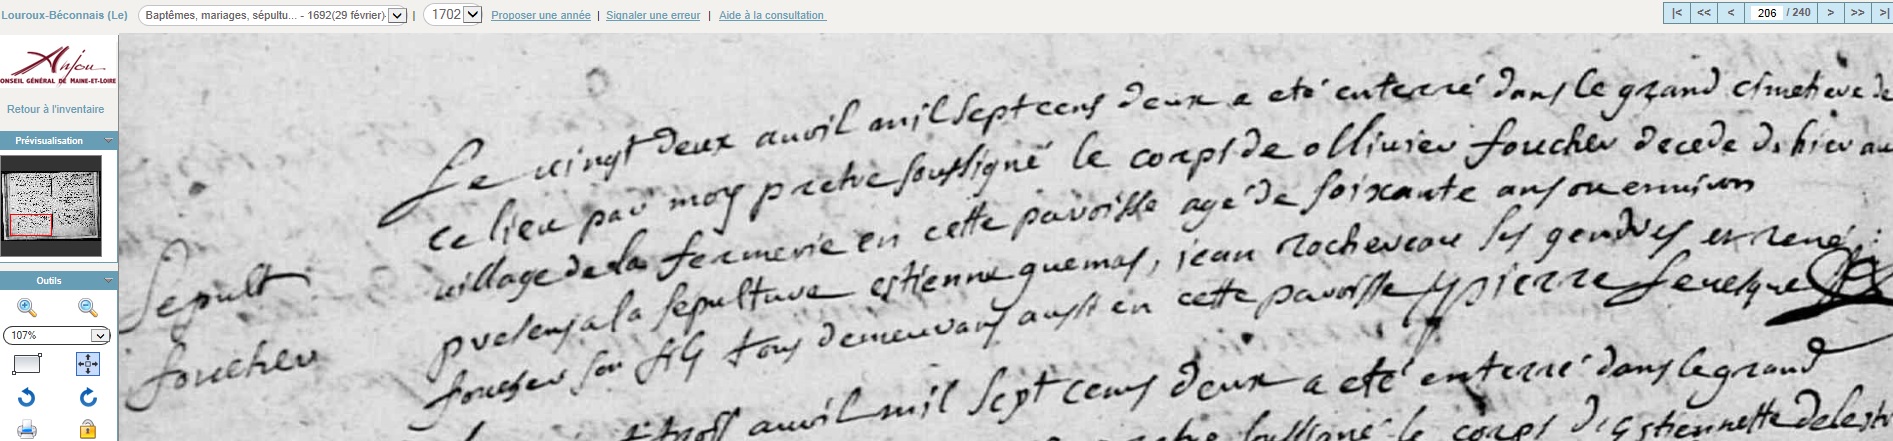 Louroux-Béconnais (Le)
Baptêmes, mariages, sépultu... - 1692(29 février)-
| 1702
Proposer une année | Signaler une erreur | Aide à la consultation
|< << < 206 / 240 > >> >|
Anjou
CONSEIL GÉNÉRAL DE MAINE-ET-LOIRE
Retour à l'inventaire
Prévisualisation
Outils
107%
Sepult
foucher
Le vingt deux auvil mil sept cens deux a eté enterré dans le grand cimetiere de
ce lieu par moy pretre soussigné le corps de ollivier foucher decede d'hier au
village de la fermerie en cette paroisse agé de soixante ans ou environ
presens a la sepulture estienne guemas, jean rochereau ses gendres et rené
foucher son fils tous demeurans aussi en cette paroisse pierre Levesque
auvil mil sept cens deux a eté enterré dans le grand
soussigné le corps d'Estiennette